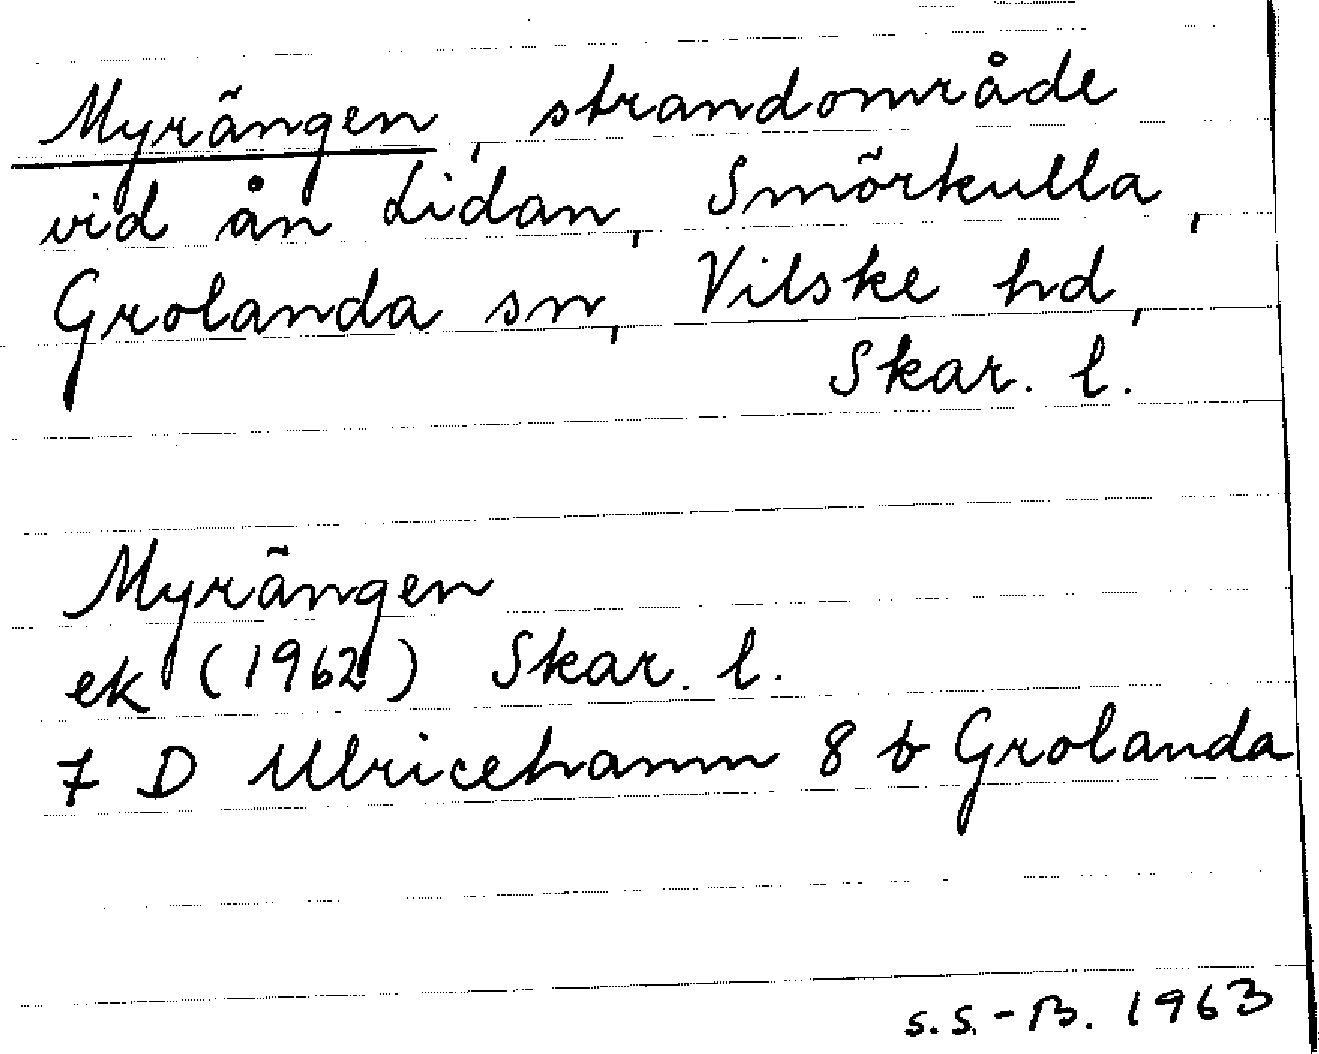 Myrängen, strandområde
vid ån Lidan, Smörkulla,
Grolanda sn, Vilske hd,
Skar. l.
Myrängen
ek (1962) Skar. l.
7 D Ulricehamn 8 b Grolanda
s.s.-B. 1963